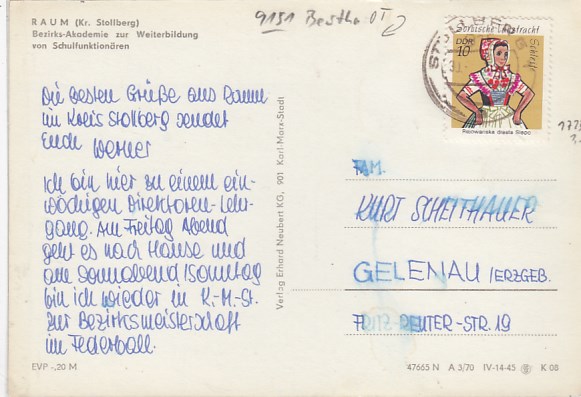 RAUM (Kr. Stollberg)
Bezirks-Akademie zur Weiterbildung
von Schulfunktionären
9151 Beutha OT
STOLLBERG
Sorbische Volkstracht
DDR
10
Schleife
Rejowanska drasta Slepo
Die besten Grüße aus Raum
im Kreis Stollberg sendet
Euch Werner
Ich bin hier zu einem ein-
wöchigen Direktoren-Lehr-
gang. Am Freitag Abend
geht es nach Hause und
am Sonnabend/Sonntag
bin ich wieder in K.-M.-St.
zur Bezirksmeisterschaft
im Federball.
Verlag Erhard Neubert KG, 901 Karl-Marx-Stadt
FAM.
KURT SCHEITHAUER
GELENAU/ERZGEB.
FRITZ-REUTER-STR. 19
EVP -,20 M
47665 N A 3/70 IV-14-45 K 08